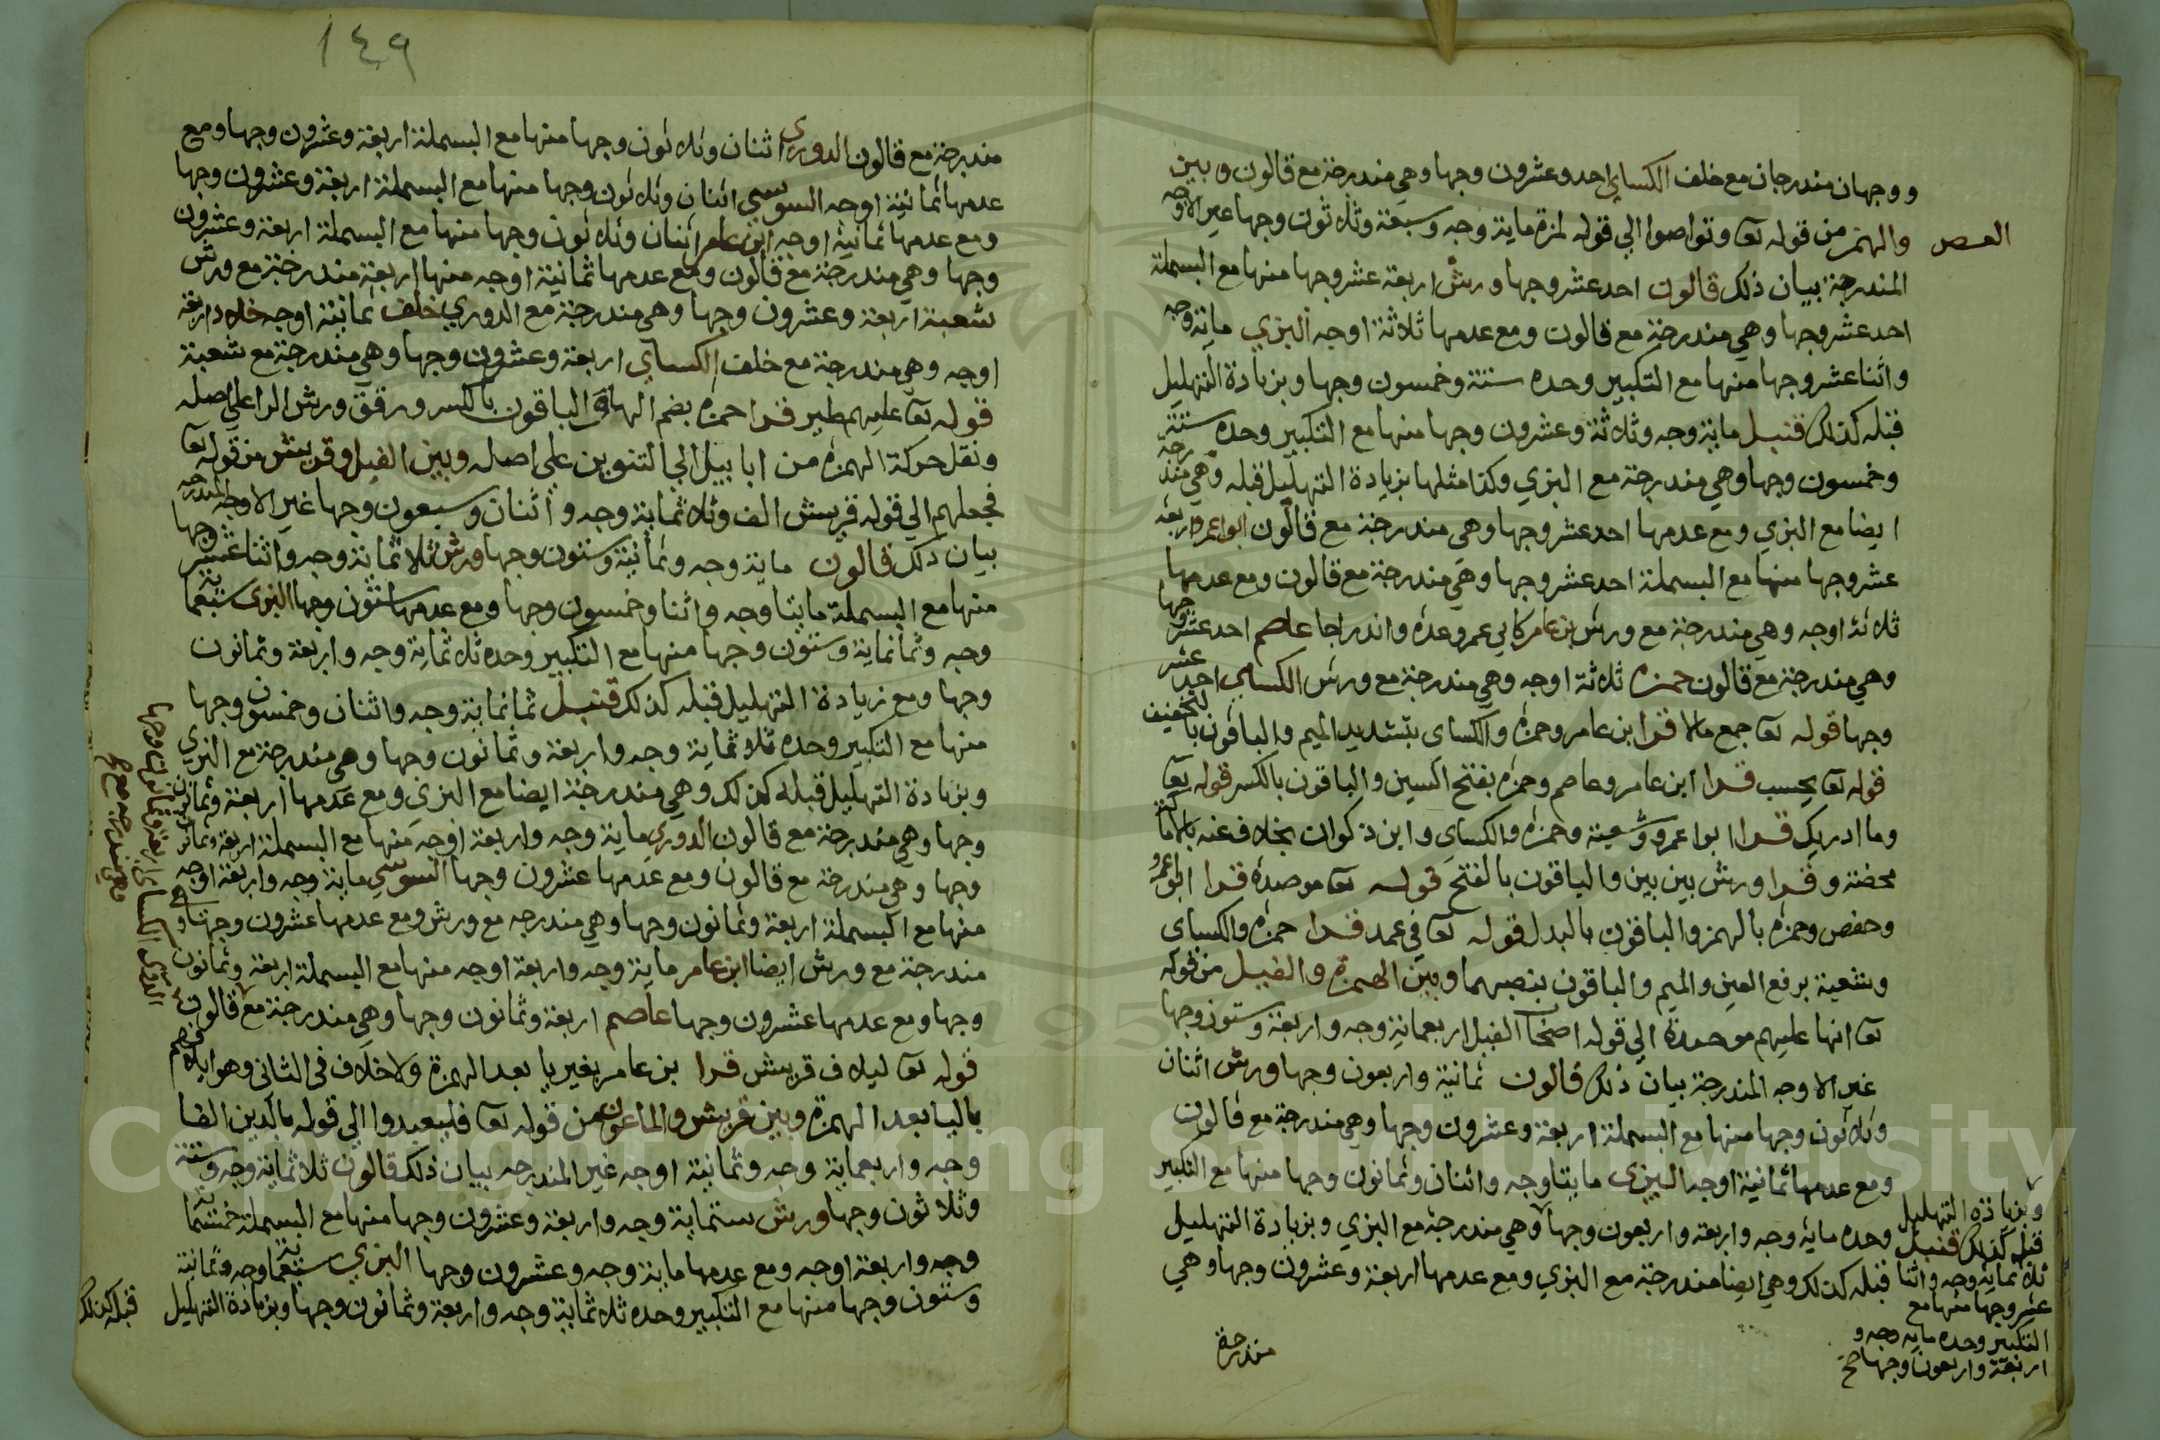 ووجهان مندرجان مع خلف الكساي احد وعشرون وجها وهي مندرجة مع قالون وبين
العصر والهمز من قوله تعا وتواصوا الي قوله لمزة ماية وجه وسبعة وثلاثون وجها غير الاوجه
المندرجة بيان ذلك قالون احد عشر وجها ورش اربعة عشر وجها منها مع البسملة
احد عشر وجها وهي مندرجة مع قالون ومع عدمها ثلاثة اوجه البزي ماية وجه
واثنا عشر وجها منها مع التكبير وحده ستة وخمسون وجها وبزيادة التهليل
قبله كذلك قنبل ماية وجه وثلاثة وعشرون وجها منها مع التكبير وحده ستة
وخمسون وجها وهي مندرجة مع البزي وكذا مثلها بزيادة التهليل قبله وهي مندرجة
ايضا مع البزي ومع عدمها احد عشر وجها وهي مندرجة مع قالون ابو اعمرو اربعة
عشر وجها منها مع البسملة احد عشر وجها وهي مندرجة مع قالون ومع عدمها
ثلاثة اوجه وهي مندرجة مع ورش بن عامر كابي عمرو عدة واندراجا عاصم احد عشر وجها
وهي مندرجة مع قالون حمزة ثلاثة اوجه وهي مندرجة مع ورش الكساي احد عشر
وجها قوله تعا جمع مالا قرا ابن عامر وحمزة والكساي بتشديد الميم والباقون بالتخفيف
قوله تعا يحسب قرا ابن عامر وعاصم وحمزة بفتح السين والباقون بالكسر قوله تعا
وما ادريك قرا ابوا عمرو وشعبة وحمزة والكساي وابن ذكوان بخلاف عنه بالامالة
محضة وقرا ورش بين بين والباقون بالفتح قوله تعا موصدة قرا ابوا عمرو
وحفص وحمزة بالهمز والباقون بالبدل قوله تعا في عمد قرا حمزة والكساي
وشعبة برفع العين والميم والباقون بنصبهما وبين الهمزة والفيل من قوله
تعا انها عليهم موصدة الي قوله اصحاب الفيل اربعماية وجه واربعة وستون وجها
غير الاوجه المندرجة بيان ذلك قالون ثمانية واربعون وجها ورش اثنان
وثلاثون وجها منها مع البسملة اربعة وعشرون وجها وهي مندرجة مع قالون
ومع عدمها ثمانية اوجه البزي مايتا وجه واثنان وثمانون وجها منها مع التكبير
وحده ماية وجه واربعة واربعون وجها وهي مندرجة مع البزي وبزيادة التهليل
قبله كذلك وهي ايضا مندرجة مع البزي ومع عدمها اربعة وعشرون وجها وهي
وبزيادة التهليل
قبله كذلك قنبل
ثلاثماية وجه واثنا
عشر وجها منها مع
التكبير وحده ماية وجه و
اربعة واربعون وجها صح
مندرجة
١٤٩
مندرجة مع قالون الدوري اثنان وثلاثون وجها منها مع البسملة اربعة وعشرون وجها ومع
عدمها ثمانية اوجه السوسي اثنان وثلاثون وجها منها مع البسملة اربعة وعشرون وجها
ومع عدمها ثمانية اوجه ابن عامر اثنان وثلاثون وجها منها مع البسملة اربعة وعشرون
وجها وهي مندرجة مع قالون ومع عدمها ثمانية اوجه منها اربعة مندرجة مع ورش
شعبة اربعة وعشرون وجها وهي مندرجة مع الدوري خلف ثمانية اوجه خلاد اربعة
اوجه وهي مندرجة مع خلف الكساي اربعة وعشرون وجها وهي مندرجة مع شعبة
قوله تعا عليهم طير قرا حمزة بضم الهاء والباقون بالكسر ورقق ورش الرا علي اصله
ونقل حركة الهمزة من ابابيل الي التنوين علي اصله وبين الفيل وقريش من قوله تعا
فجعلهم الي قوله قريش الف وثلاثماية وجه واثنان وسبعون وجها غير الاوجه المندرجة
بيان ذلك قالون ماية وجه وثمانية وستون وجها ورش ثلاثماية وجه واثنا عشر وجها
منها مع البسملة مايتا وجه واثنا وخمسون وجها ومع عدمها ستون وجها البزي سبعماية
وجه وثمانماية وستون وجها منها مع التكبير وحده ثلاثماية وجه واربعة وثمانون
وجها ومع زيادة التهليل قبله كذلك قنبل ثمانماية وجه واثنان وخمسون وجها
منها مع التكبير وحده ثلاثماية وجه واربعة وثمانون وجها وهي مندرجة مع البزي
وبزيادة التهليل قبله كذلك وهي مندرجة ايضا مع البزي ومع عدمها اربعة وثمانون
وجها وهي مندرجة مع قالون الدوري ماية وجه واربعة اوجه منها مع البسملة اربعة وثمانون
وجها وهي مندرجة مع قالون ومع عدمها عشرون وجها السوسي ماية وجه واربعة اوجه
منها مع البسملة اربعة وثمانون وجها وهي مندرجه مع ورش ومع عدمها عشرون وجها وهي
مندرجة مع ورش ايضا ابن عامر ماية وجه واربعة اوجه منها مع البسملة اربعة وثمانون
وجها ومع عدمها عشرون وجها عاصم اربعة وثمانون وجها وهي مندرجة مع قالون
قوله تعا ليلاف قريش قرا بن عامر بغير يا بعد الهمزة ولا خلاف في الثاني وهو ايلافهم
باليا بعد الهمزة وبين قريش والماعون من قوله تعا فليعبدوا الي قوله بالدين الفا
وجه واربعماية وجه وثمانية اوجه غير المندرجه بيان ذلك قالون ثلاثماية وجه وستة
وثلاثون وجها ورش ستماية وجه واربعة وعشرون وجها منها مع البسملة خمسماية
وجه واربعة اوجه ومع عدمها ماية وجه وعشرون وجها البزي سبعماية وجه وثمانية
وستون وجها منها مع التكبير وحده ثلاثماية وجه واربعة وثمانون وجها وبزيادة التهليل
قبله كذلك
الكساي اربعة وثمانون وجها
وهي مندرجه مع
Copyright © King Saud University